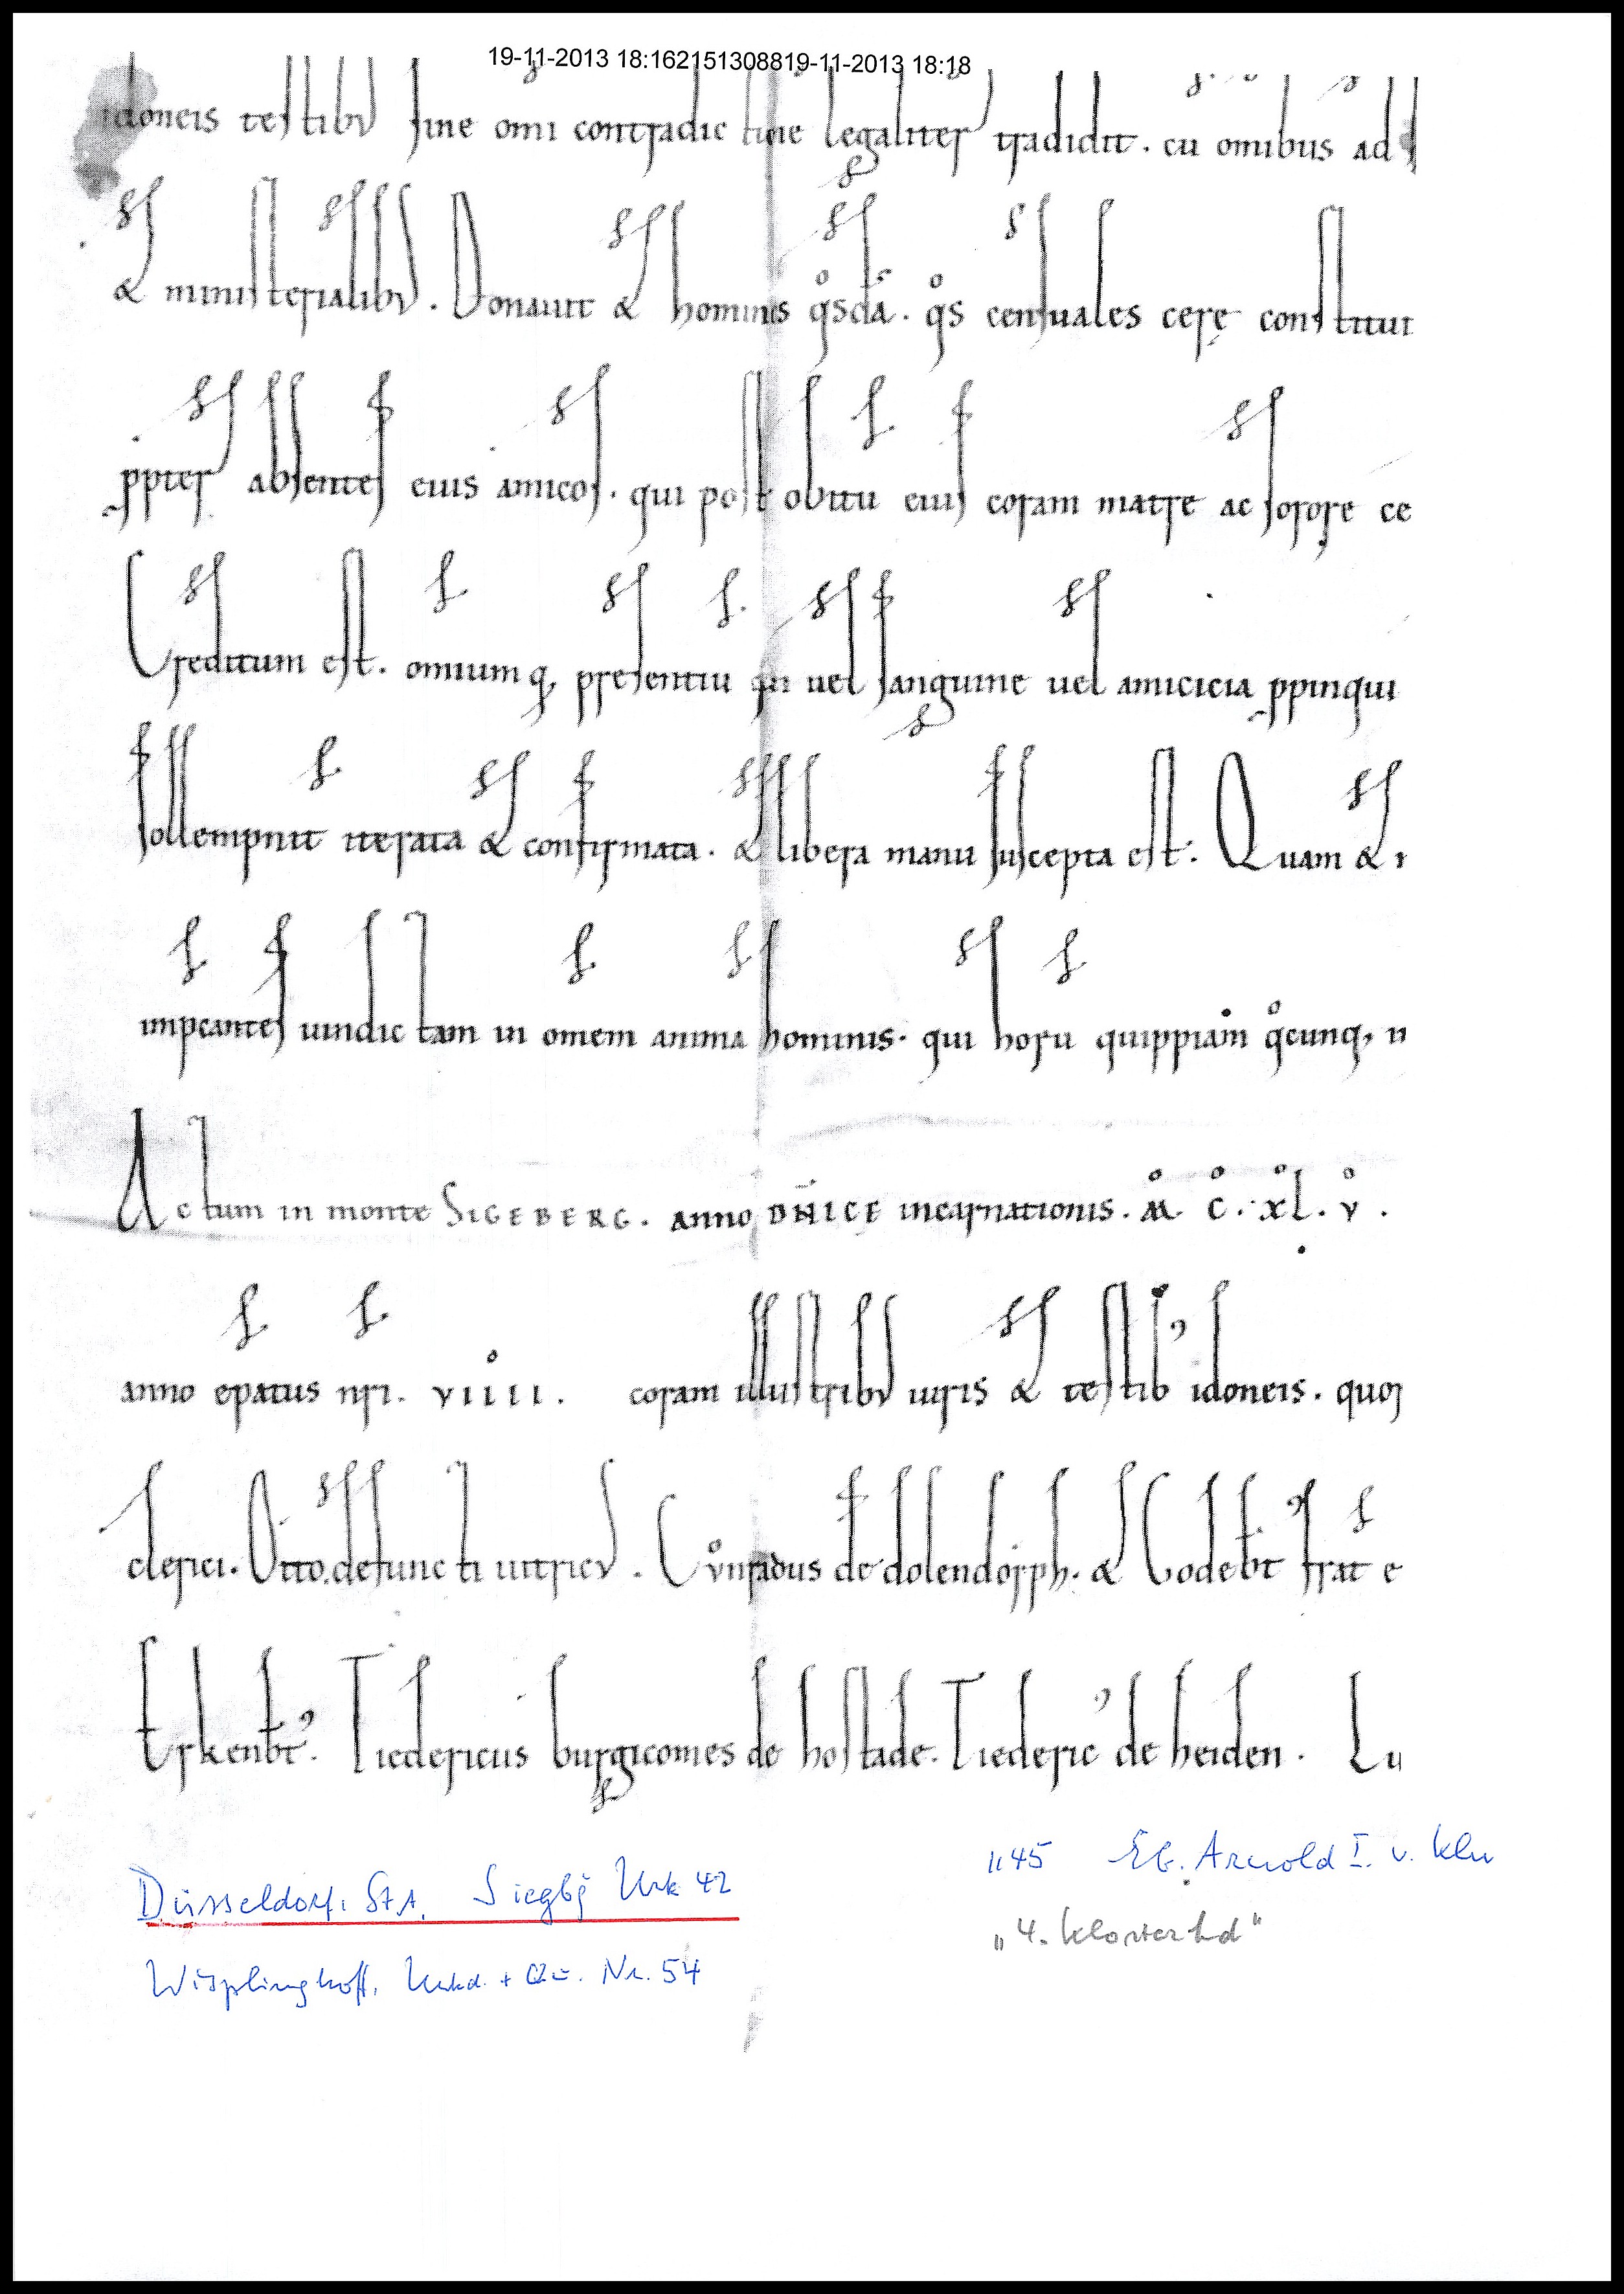 19-11-2013 18:162151308819-11-2013 18:18
idoneis testibus sine omi contradictione legaliter tradidit . cu omibus ad
& ministerialibus . Donauit & homines qosdā . qos censuales cerę constitui
ppter absentes eius amicos . qui post obitu eius coram matre ac sorore ce
Creditum est . omiumq, presentiu qui uel sanguine uel amicicia ppinqui
sollempnit iterata & confirmata . & libera manu suscepta est . Quam & i
impcantes uindictam in omem anima hominis . qui horu quippiam qocunq,
Actum in monte SIGEBERG . anno DN̄ICE incarnationis . M̊ C̊ . XL̊ . V̊ .
anno ep̄atus nr̄i . VIIII . coram illustribus uiris & testib' idoneis . quor
clerici . Otto . defuncti uitricus . Cuͦnradus de dolendorph . & Godeb̄t frat e
Erkenb̄t' . Tiedericus burgicomes de hostade . Tiederic' de heiden . Lu
Düsseldorf, StA, Siegbg Urk 42
1145 Eb. Arnold I. v. Kln
"4. Klosterhd"
Wisplinghoff, Urkd. + Qu. Nr. 54